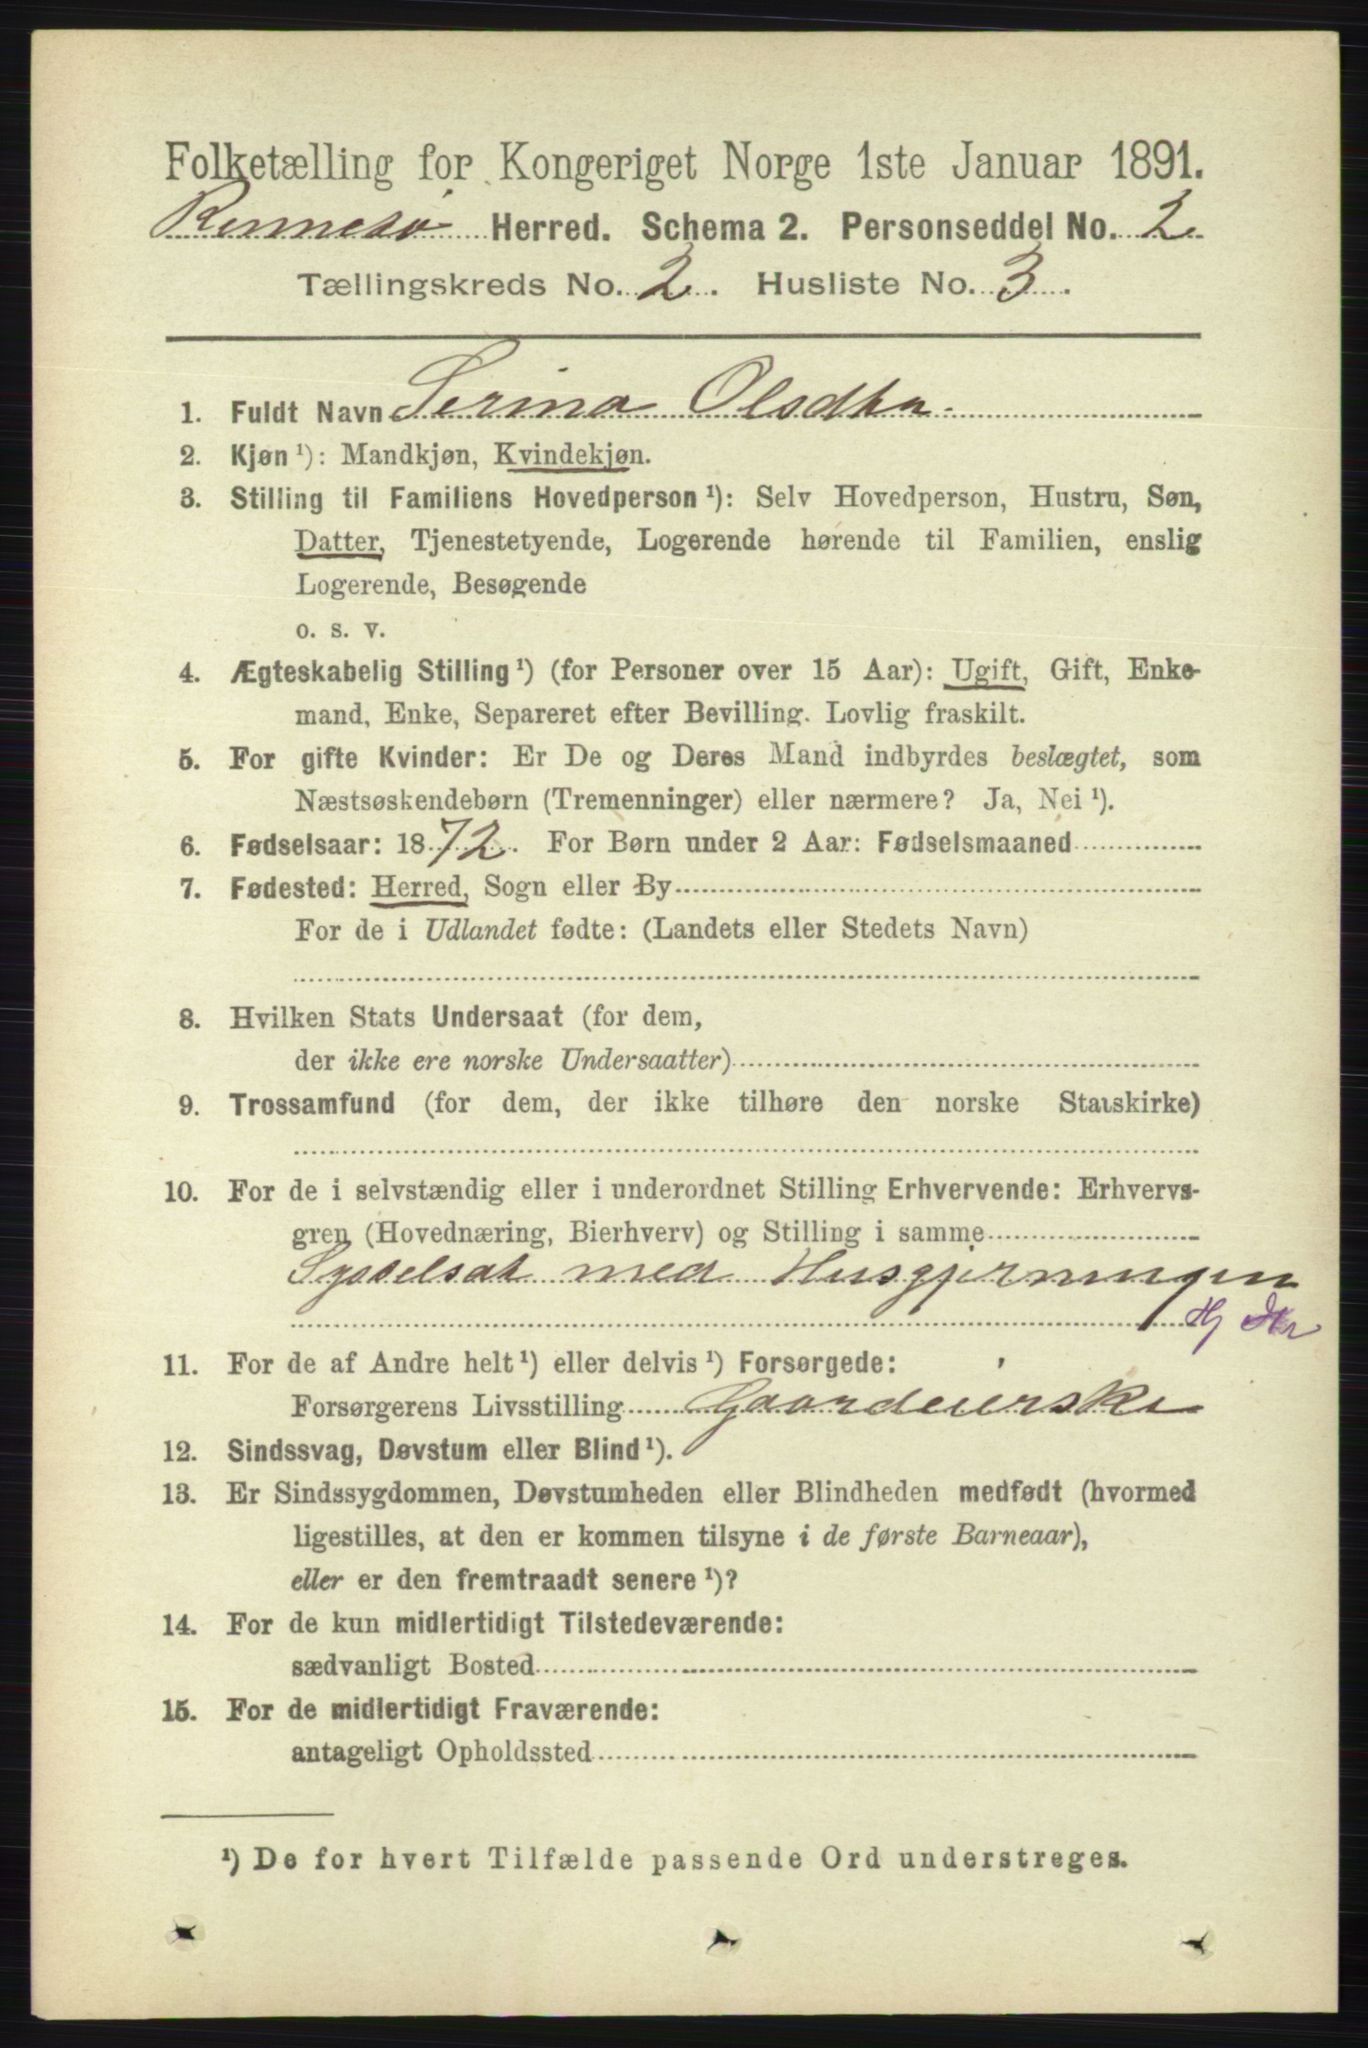 Folketælling for Kongeriget Norge 1ste Januar 1891.
Rennesø Herred. Schema 2. Personseddel No. 2
Tællingskreds No. 2. Husliste No. 3.
1. Fuldt Navn Serina Olsdtr
2. Kjøn¹): Mandkjøn, Kvindekjøn.
3. Stilling til Familiens Hovedperson¹): Selv Hovedperson, Hustru, Søn,
Datter, Tjenestetyende, Logerende hørende til Familien, enslig
Logerende, Besøgende
o. s. v.
4. Ægteskabelig Stilling¹) (for Personer over 15 Aar): Ugift, Gift, Enke-
mand, Enke, Separeret efter Bevilling. Lovlig fraskilt.
5. For gifte Kvinder: Er De og Deres Mand indbyrdes beslægtet, som
Næstsøskendebørn (Tremenninger) eller nærmere? Ja, Nei¹).
6. Fødselsaar: 1872. For Børn under 2 Aar: Fødselsmaaned
7. Fødested: Herred, Sogn eller By
For de i Udlandet fødte: (Landets eller Stedets Navn)
8. Hvilken Stats Undersaat (for dem,
der ikke ere norske Undersaatter)
9. Trossamfund (for dem, der ikke tilhøre den norske Statskirke)
10. For de i selvstændig eller i underordnet Stilling Erhvervende: Erhvervs-
gren (Hovednæring, Bierhverv) og Stilling i samme
Sysselsat med Husgjerningen
11. For de af Andre helt¹) eller delvis¹) Forsørgede:
Forsørgerens Livsstilling Gaardeierske
12. Sindssvag, Døvstum eller Blind¹).
13. Er Sindssygdommen, Døvstumheden eller Blindheden medfødt (hvormed
ligestilles, at den er kommen tilsyne i de første Barneaar),
eller er den fremtraadt senere¹)?
14. For de kun midlertidigt Tilstedeværende:
sædvanligt Bosted
15. For de midlertidigt Fraværende:
antageligt Opholdssted
¹) De for hvert Tilfælde passende Ord understreges.